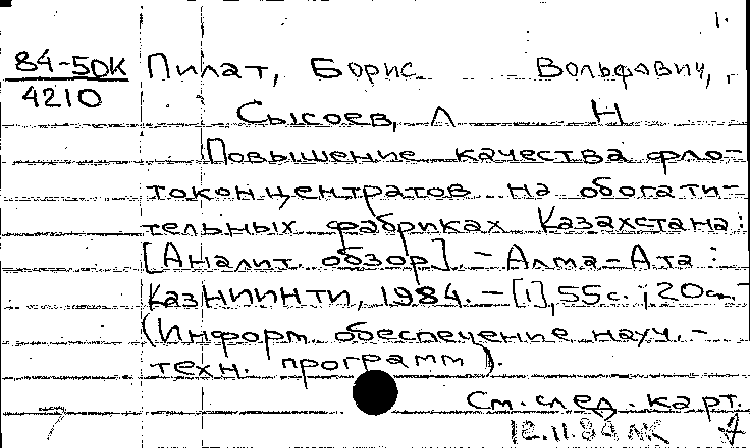 1.
84-50К Пилат, Борис Вольфович,
4210
Сысоев, Л Н
Повышение качества фло-
токонцентратов на обогати-
тельных фабриках Казахстана:
[Аналит. обзор]. - Алма-Ата:
КазНИИНТИ, 1984. - [1], 55с.; 20см-
(Информ. обеспечение науч.-
техн. программ).
См. след. карт.
12.11.84